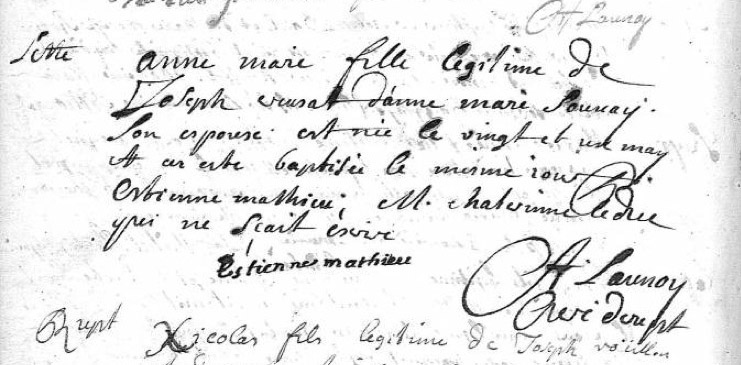 A Launoy
Lette anne marie fille legitime de
Joseph crusat d'anne marie
son espouse est née le vingt et un may
et at este baptisée le mesme iour P.
estienne mathieu M. chaterinne
qui ne scait escire
Estienne mathieu
A Launoy
Curé de rupt
Rupt Nicolas fils legitime de Joseph